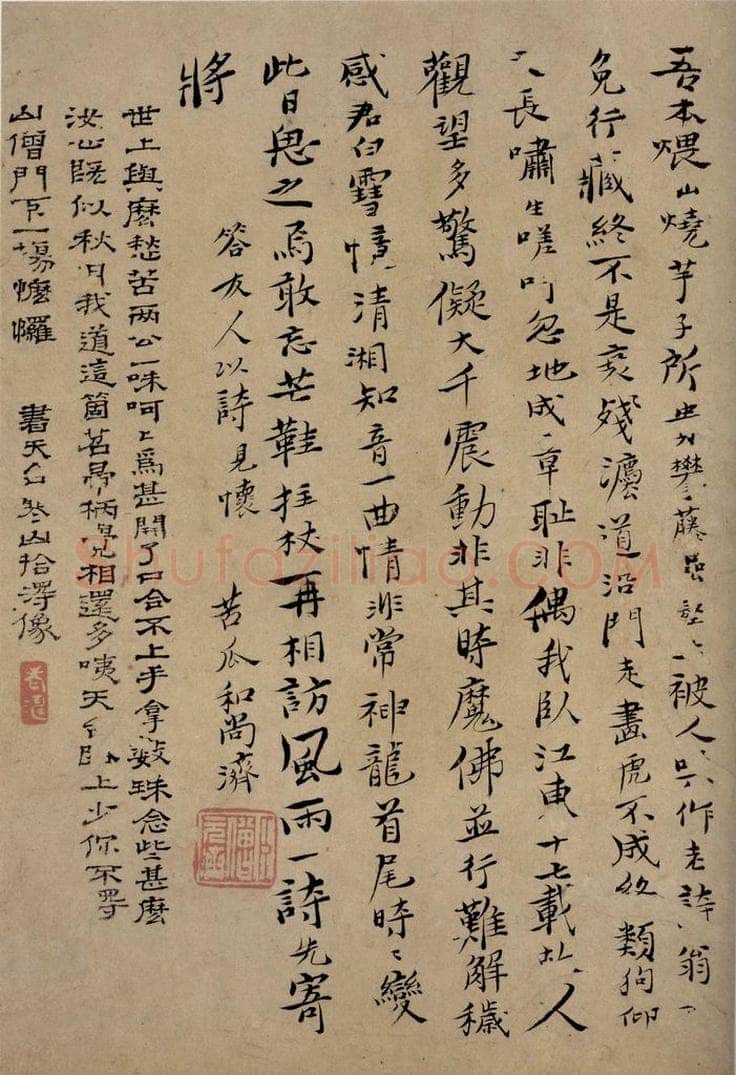 吾本煨山燒芋子所 攀藤 被人 作老詩翁
免行藏終不是衰殘瀍道沿門走畫虎不成終類狗仰
天長嘯生嗟吁忽地成章恥非偶我臥江東十七載故人
觀望多驚儗大千震動非其時魔佛並行難解穢
感君白雪懷清湘知音一曲情非常神龍首尾時〻變
此日思之焉敢忘芒鞋拄杖再相訪風雨一詩先寄
將
答友人以詩見懷 苦瓜和尚濟
世上與麼愁苦两公一味呵〻為甚開了口合不上手拿数珠念些甚麼
汝心既似秋月我道這箇苕帚柄 相還多咦天台 上少你不得
山僧門下一場懡㦬 書天台寒山拾得像
Shufaziliao.COM